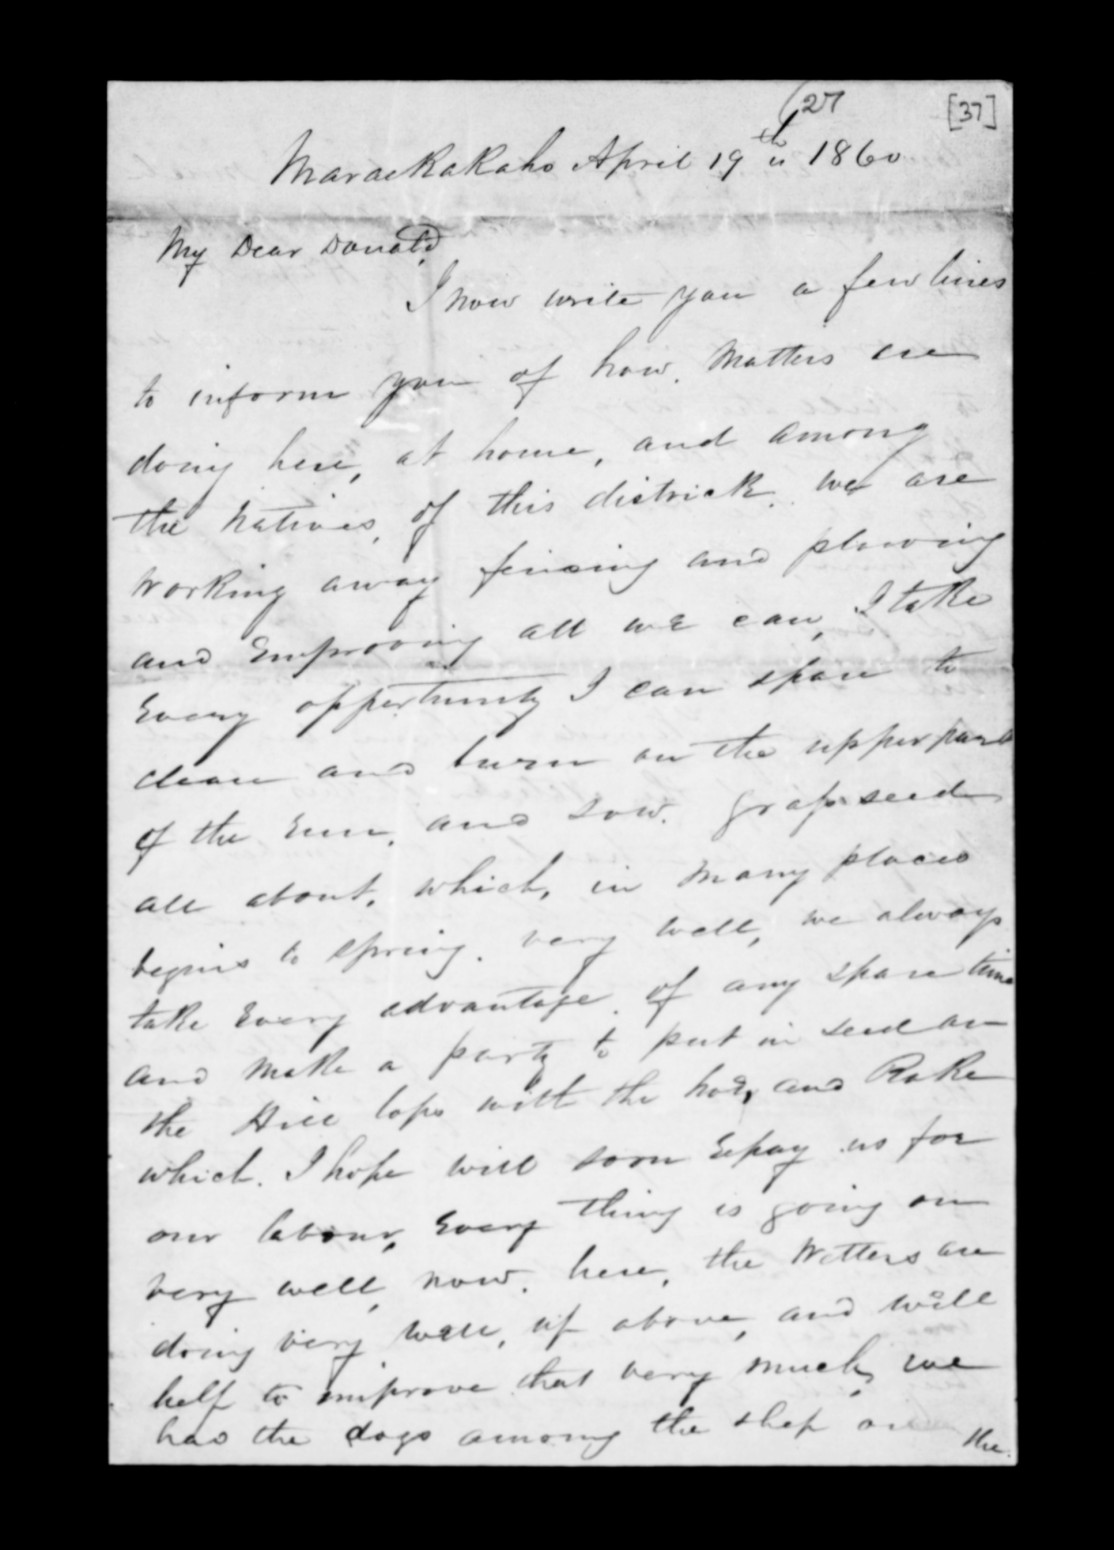 (27
[37]
Maraekakaho April 19th 1860
My Dear Donald,
I now write you a few lines
to inform you of how. Matters are
doing here, at home, and among
the Natives, of this districk. we are
Working away fencing and plowing
and Emproving all we can, I take
Every opportunity I can spare to
clean and burn on the upper part
of the Run, and sow. grass seed
all about, which, in Many places
begins to spring. very well, we always
take Every advantage. of any spare time
and Make a party to put in seed on
the Hill tops with the hoe, and Rake
which. I hope will soon Repay us for
our labour, Every thing is going on
very well, now. here, the Wetters are
doing very well, up above, and will
help to improve that very much, we
has the dogs among the shep on
the.